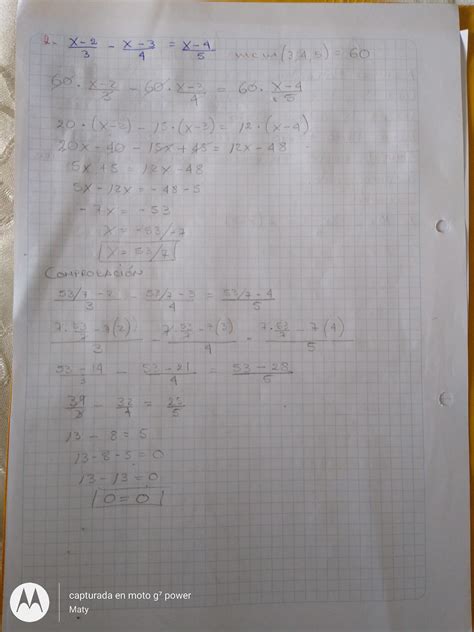 x-2/3 - x-3/4 = x-4/5 mcm (3,4,5) = 60
60 · x-2/3 - 60 · x-3/4 = 60 · x-4/5
20 · (x-2) - 15 · (x-3) = 12 · (x-4)
20x - 40 - 15x + 45 = 12x - 48
5x + 5 = 12x - 48
5x - 12x = -48 - 5
-7x = -53
x = -53/-7
x = 53/7
COMPROBACIÓN
53/7 - 2/3 - 53/7 - 3/4 = 53/7 - 4/5
7·53/7 - 7(2)/3 - 7·53/7 - 7(3)/4 = 7·53/7 - 7(4)/5
53 - 14/3 - 53 - 21/4 = 53 - 28/5
39/3 - 32/4 = 25/5
13 - 8 = 5
13 - 8 - 5 = 0
13 - 13 = 0
0 = 0
capturada en moto g⁷ power
Maty